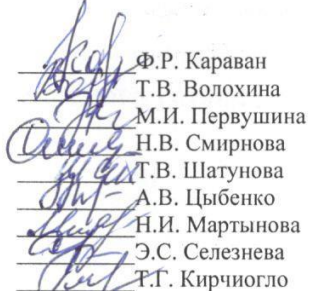 Ф.Р. Караван
Т.В. Волохина
М.И. Первушина
Н.В. Смирнова
Т.В. Шатунова
А.В. Цыбенко
Н.И. Мартынова
Э.С. Селезнева
Т.Г. Кирчиогло